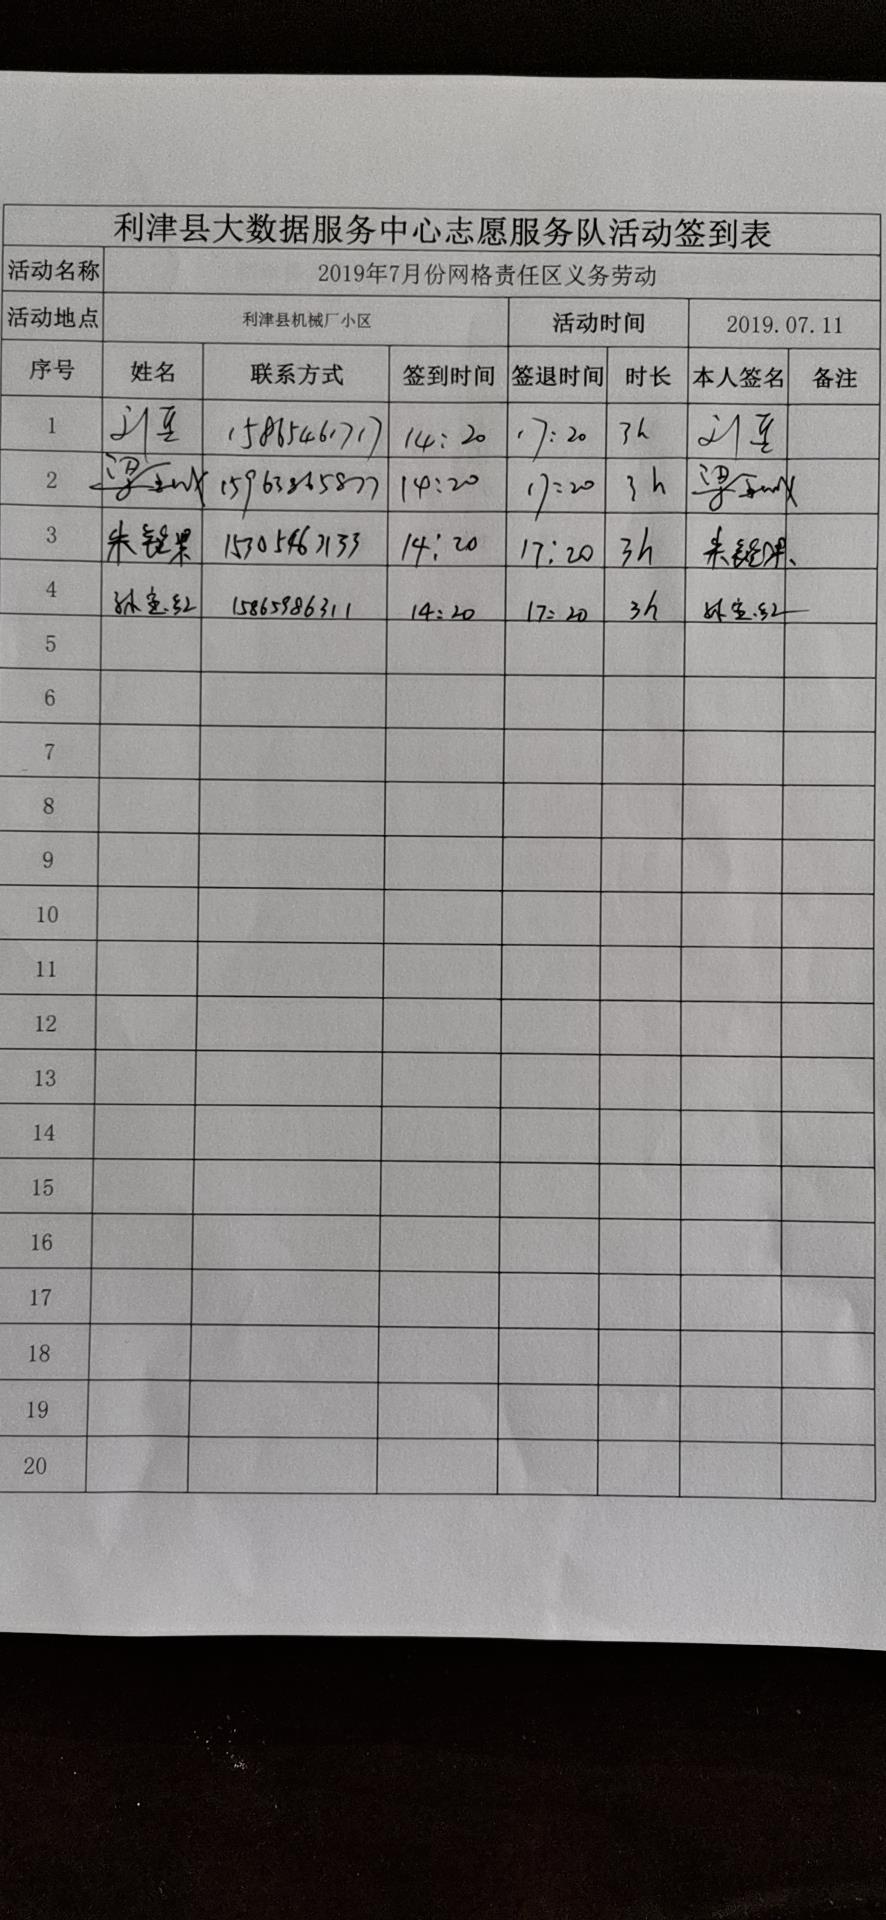 利津县大数据服务中心志愿服务队活动签到表
活动名称 2019年7月份网格责任区义务劳动
活动地点 利津县机械厂小区 活动时间 2019.07.11
序号 姓名 联系方式 签到时间 签退时间 时长 本人签名 备注
1 15865461717 14:20 17:20 3h
2 15963865877 14:20 17:20 3h
3 15305463133 14:20 17:20 3h
4 孙宝红 15865986311 14:20 17:20 3h 孙宝红
5
6
7
8
9
10
11
12
13
14
15
16
17
18
19
20